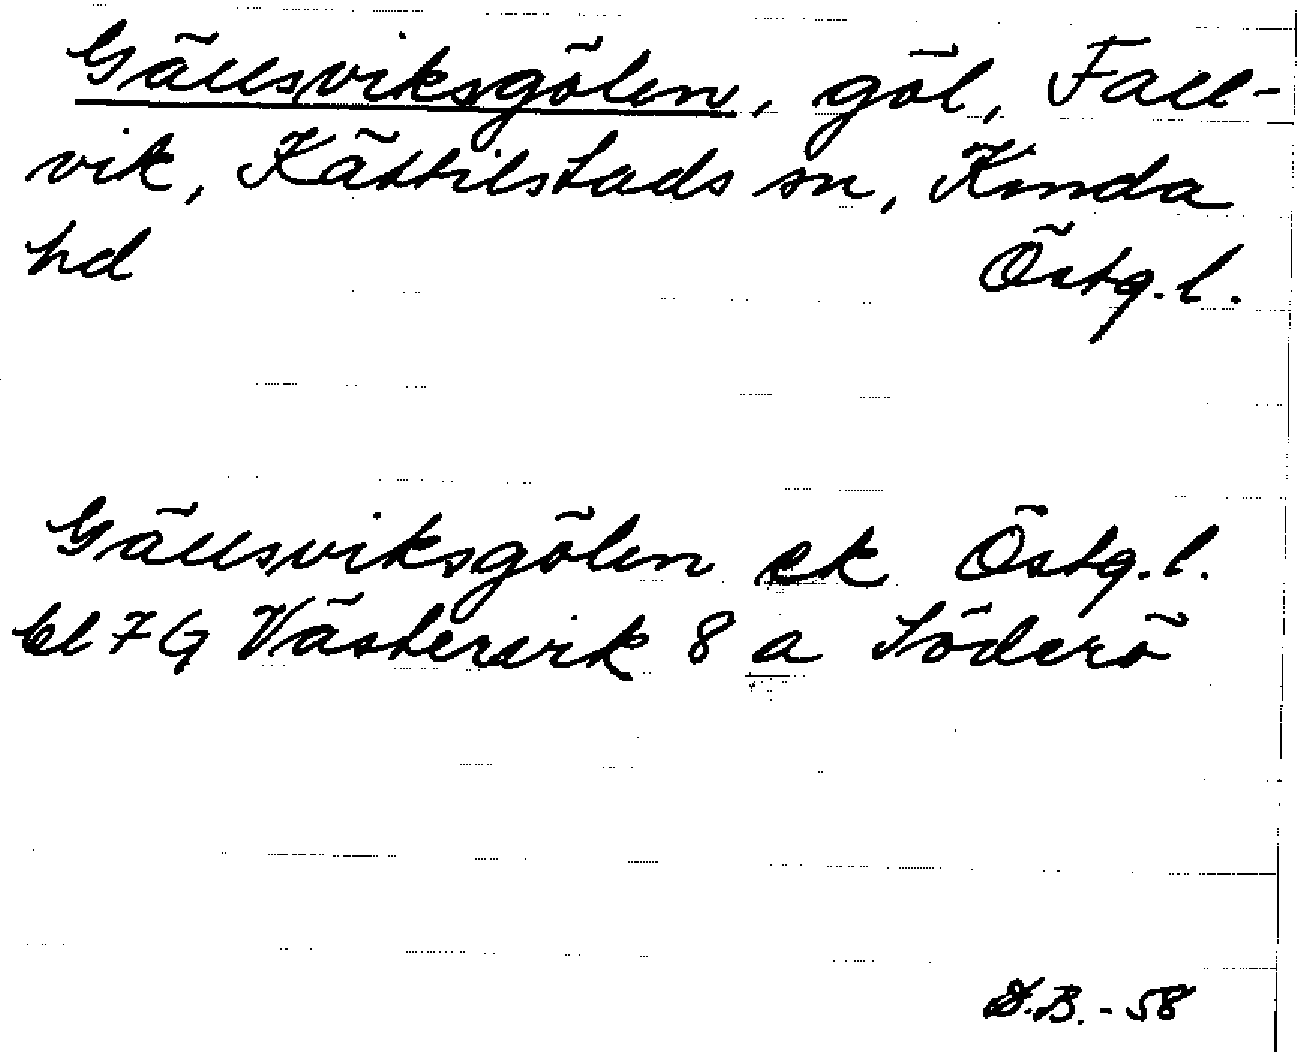 Gällsviksgölen, göl, Fall-
vik, Kättilstads sn, Kinda
hd Östg. l.
Gällsviksgölen ek Östg. l.
bl 7 G Västervik 8 a Söderö
D.B. - 58